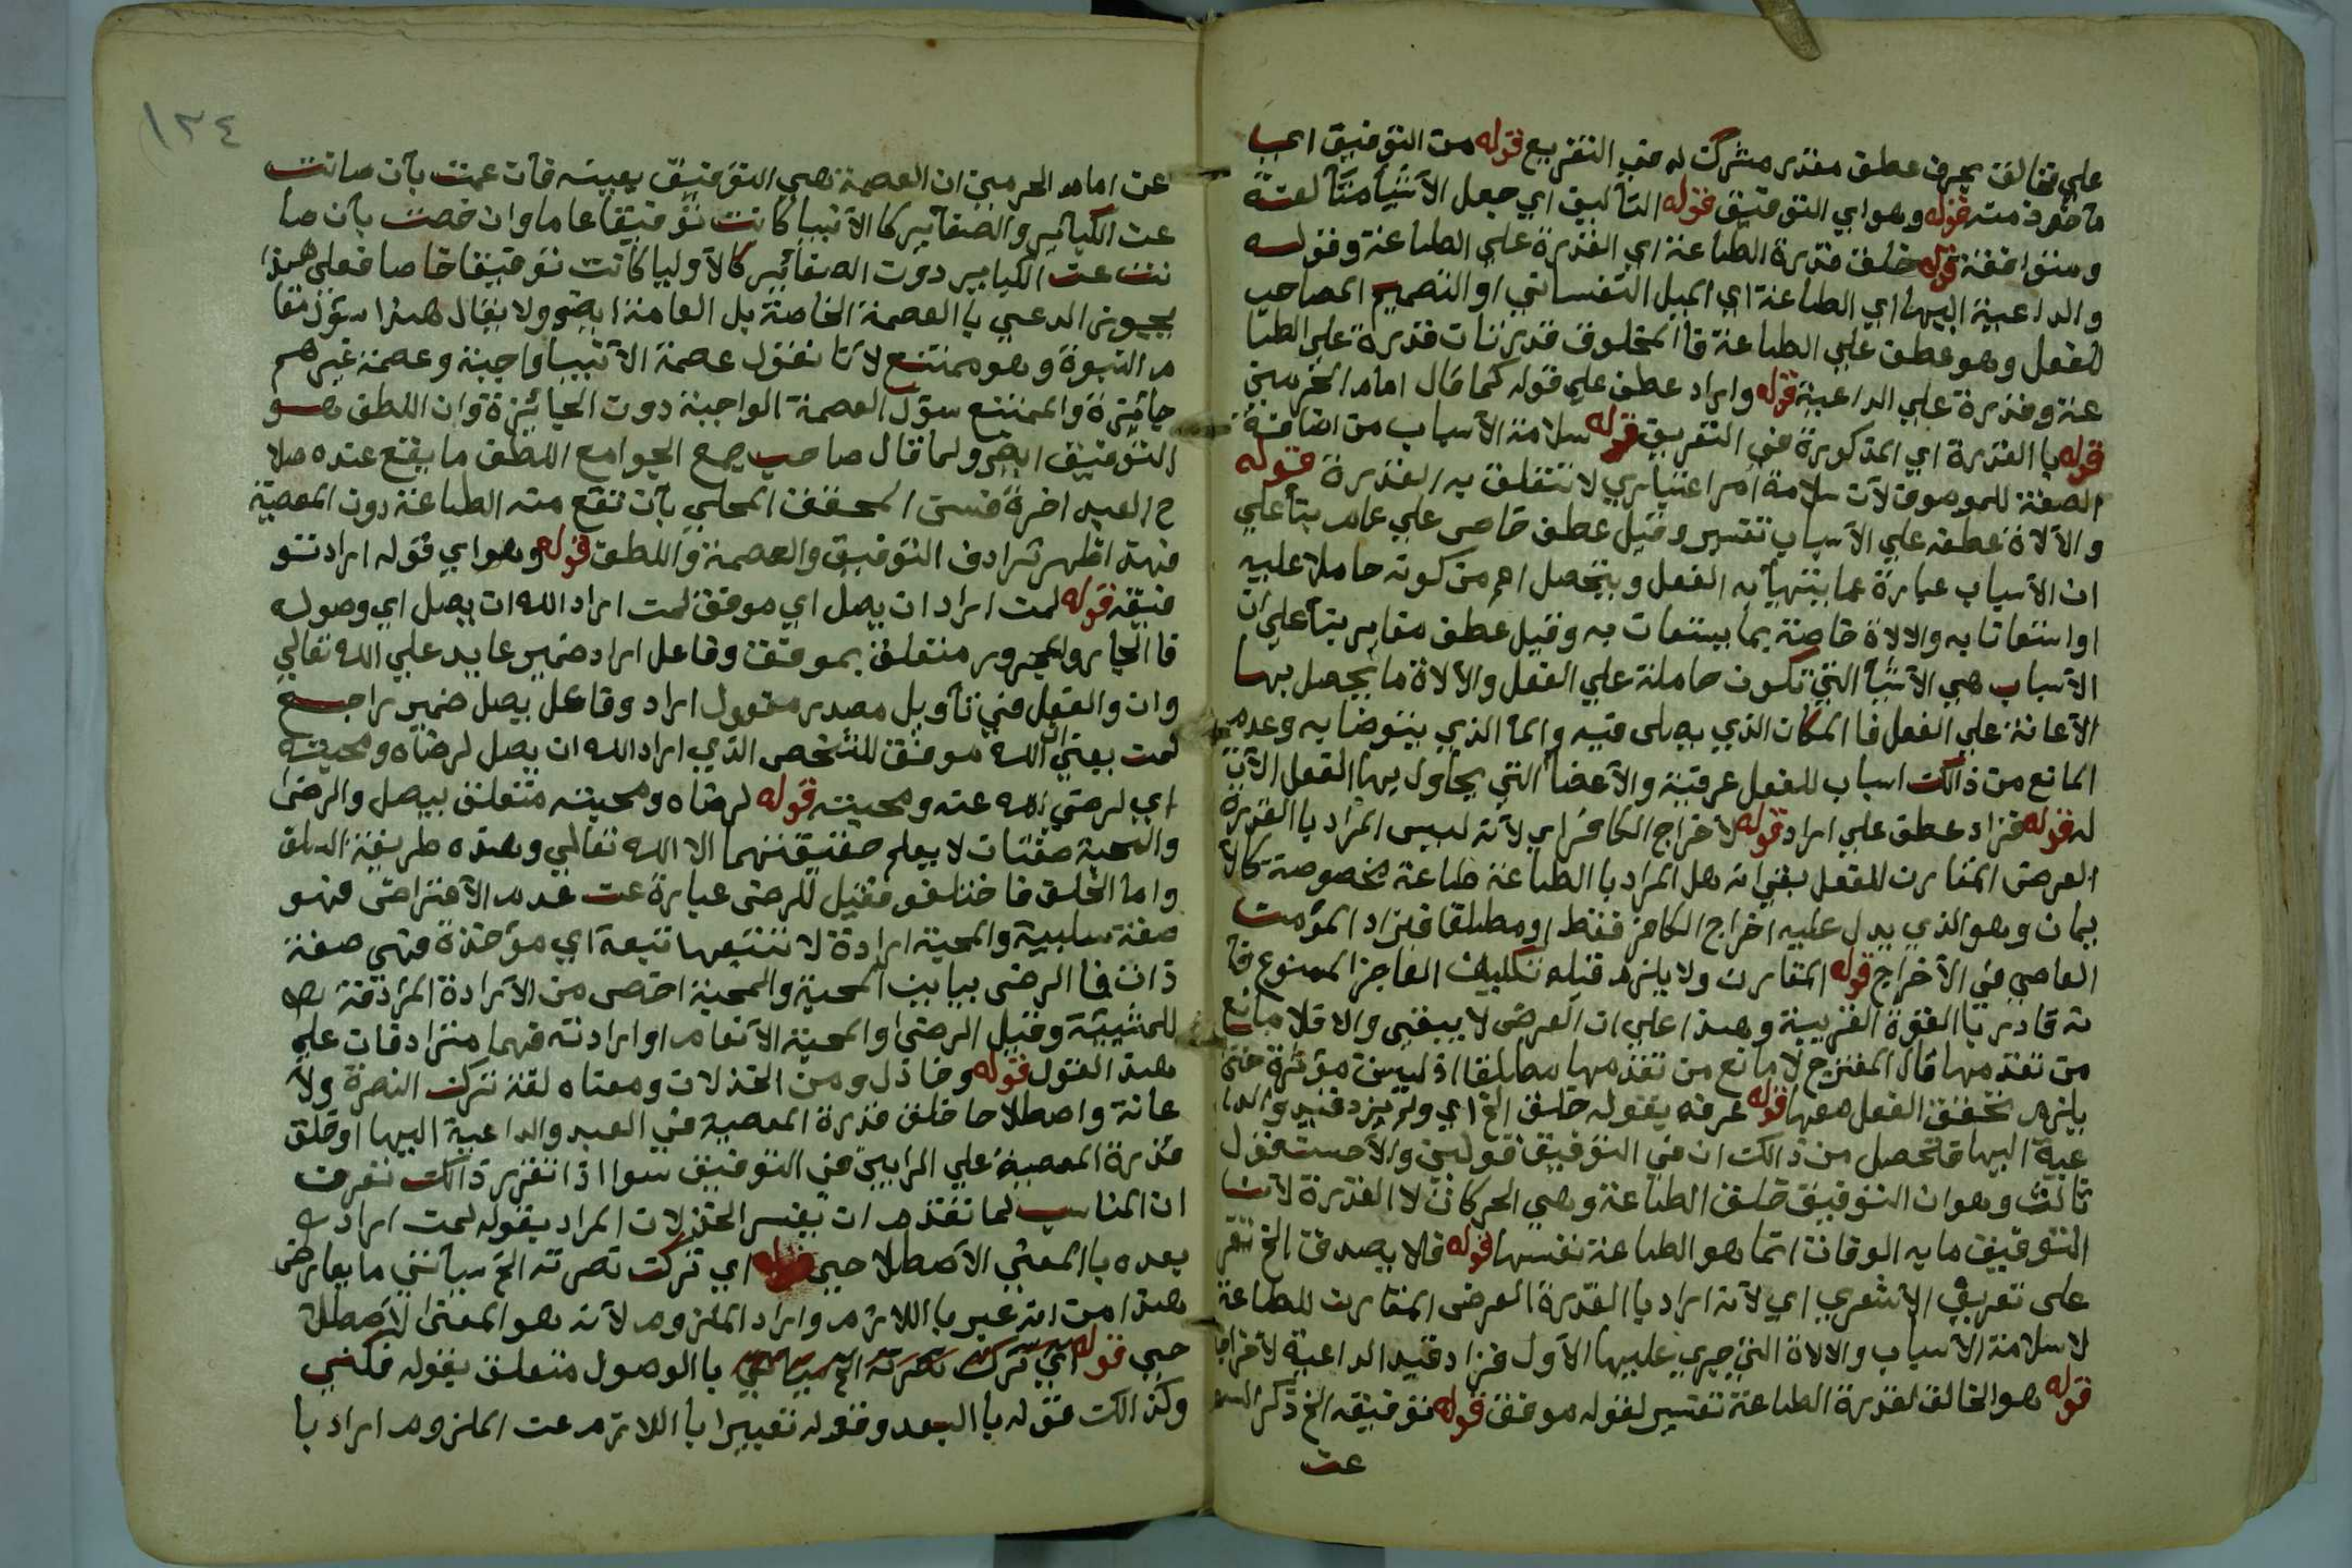 على فخالق بحرف عطف مقدر مشركت له في التفريع قوله من التوفيق اي
مأخوذ منه قوله وهو اي التوفيق قوله التأليف اي جعل الأشياء متألفة
ومتوافقة قوله خلق قدرة الطاعة اي القدرة على الطاعة وقوله
والداعية اليها اي الطاعة اي الميل النفساني او التصميم المصاحب
للفعل وهو عطف على الطاعة فالمخلوق قدرتان قدرة على الطا
عة وقدرة على الداعية قوله واراد عطف على قوله كما قال امام الحرمين
قوله بالقدرة اي المذكورة في التعريف قوله سلامة الأسباب من اضافة
الصفة للموصوف لأن سلامة امر اعتباري لا تتعلق به القدرة قوله
والآلاة عطفه على الأسباب تفسير وقيل عطف خاص على عام بناء على
ان الأسباب عبارة عما يتهيأ به الفعل ويتحصل اعم من كونه حاملا عليه
او استعانا به والالاة خاصة بما يستعان به وقيل عطف مغاير بناء على ان
الأسباب هي الأشياء التي تكون حاملة على الفعل والألاة ما يحصل بها
الأعانة على الفعل فالمكان الذي يصلى فيه والماء الذي يتوضا به وعدم
المانع من ذالك اسباب للفعل عرفية والأعضاء التي يحاول بها الفعل الآت
له قوله فزاد عطف على اراد قوله لأخراج الكافر اي لأنه ليس المراد بالقدرة
العرض المقارن للفعل بقي انه هل المراد بالطاعة طاعة مخصوصة كالا
يمان وهو الذي يدل عليه اخراج الكافر فقط او مطلقا فيزاد المؤمن
العاصي في الأخراج قوله المقارن ولا يلزم قبله تكليف العاجز الممنوع فا
نه قادر بالقوة القريبة وهذا على ان العرض لا يبقى والا فلا مانع
من تقدمها قال المقترح لا مانع من تقدمها مطلقا اذ ليست مؤثرة حتى
يلزم تحقق الفعل معها قوله عرفه بقوله خلق الخ اي ولم يزد قيد والدا
عية اليها فتحصل من ذالك ان في التوفيق قولين والأحسن قول
ثالث وهو ان التوفيق خلق الطاعة وهي الحركات لا القدرة لأن
التوفيق ما به الوفاق انما هو الطاعة نفسها قوله فلا يصدق الخ تفر
على تعريف الأشعري اي لأنه اراد بالقدرة العرض المقارن للطاعة
لا سلامة الأسباب والالاة التي جرى عليها الأول فزاد قيد الداعية لأخراجا
قوله هو الخالق لقدرة الطاعة تفسير لقوله موفق قوله توفيقه الخ ذكر
عن
١٢٤
عن امام الحرمين ان العصمة هي التوفيق بعينه فأن عمت بأن صانت
عن الكباير والصغاير كالأنبيا كانت توفيقا عاما وان خصت بأن صا
نت عن الكباير دون الصغائير كالأوليا كانت توفيقا خاصا فعلى هذا
يجوز الدعي بالعصمة الخاصة بل العامة ايضو ولا يقال هذا سؤل مقا
م النبوة وهو ممتنع لأنا نقول عصمة الأنبيا واجبة وعصمة غيرهم
جائيزة والممتنع سؤل العصمة الواجبة دون الجائيزة وان اللطف هو
التوفيق ايضو ولما قال صاحب جمع الجوامع اللطف ما يقع عنده صلا
ح العبد اخرة فسره المحقق المحلي بأن تقع منه الطاعة دون المعصية
فهذا اظهر ترادف التوفيق والعصمة واللطف قوله وهو اي قوله اراد تو
فيقه قوله لمن اراد ان يصل اي موفق لمن اراد الله ان يصل اي وصوله
فالجار والمجرور متعلق بموفق وفاعل اراد ضمير عايد على الله تعالي
وان والفعل في تأويل مصدر مفعول اراد وفاعل يصل ضمير راجع
لمن يعني الله موفق للشخص الذي اراد الله ان يصل لرضاه ومحبته
اي لرضى الله عنه ومحبته قوله لرضاه ومحبته متعلق بيصل والرضى
والمحبة صفتان لا يعلم حقيقتهما الا الله تعالى وهذه طريقة السلف
واما الخلف فاختلفو فقيل للرضى عبارة عن عدم الأعتراض فهو
صفة سلبية والمحبة ارادة لا تتبعها تبعة اي مؤخذة فهي صفة
ذات فالرضى يباين المحبة والمحبة اخص من الأرادة المرادفة
للمشيئة وقيل الرضى والمحبة الأنعام او ارادته فهما مترادفان على
هذا القول قوله وخاذل ومن الخذلان ومعناه لغة ترك النصرة ولأ
عانة واصطلاحا خلق قدرة المعصية في العبد والداعية اليها او خلق
قدرة المعصية على الرايين في التوفيق سوا اذا تقرر ذالك تعرف
ان المناسب لما تقدم ان يفسر الخذلان المراد بقوله لمن اراد
بعده بالمعنى الأصطلاحي قوله اي ترك نصرته الخ سيأتي ما يعارض
هذا من انه عبر باللازم واراد الملزوم لأنه هو المعنى لأصطلا
حي قوله اي ترك نصرته الخ سيأتي بالوصول متعلق بقوله فكنى
وكذالك قوله بالبعد وقوله تعبيرا باللازم عن الملزوم اراد با